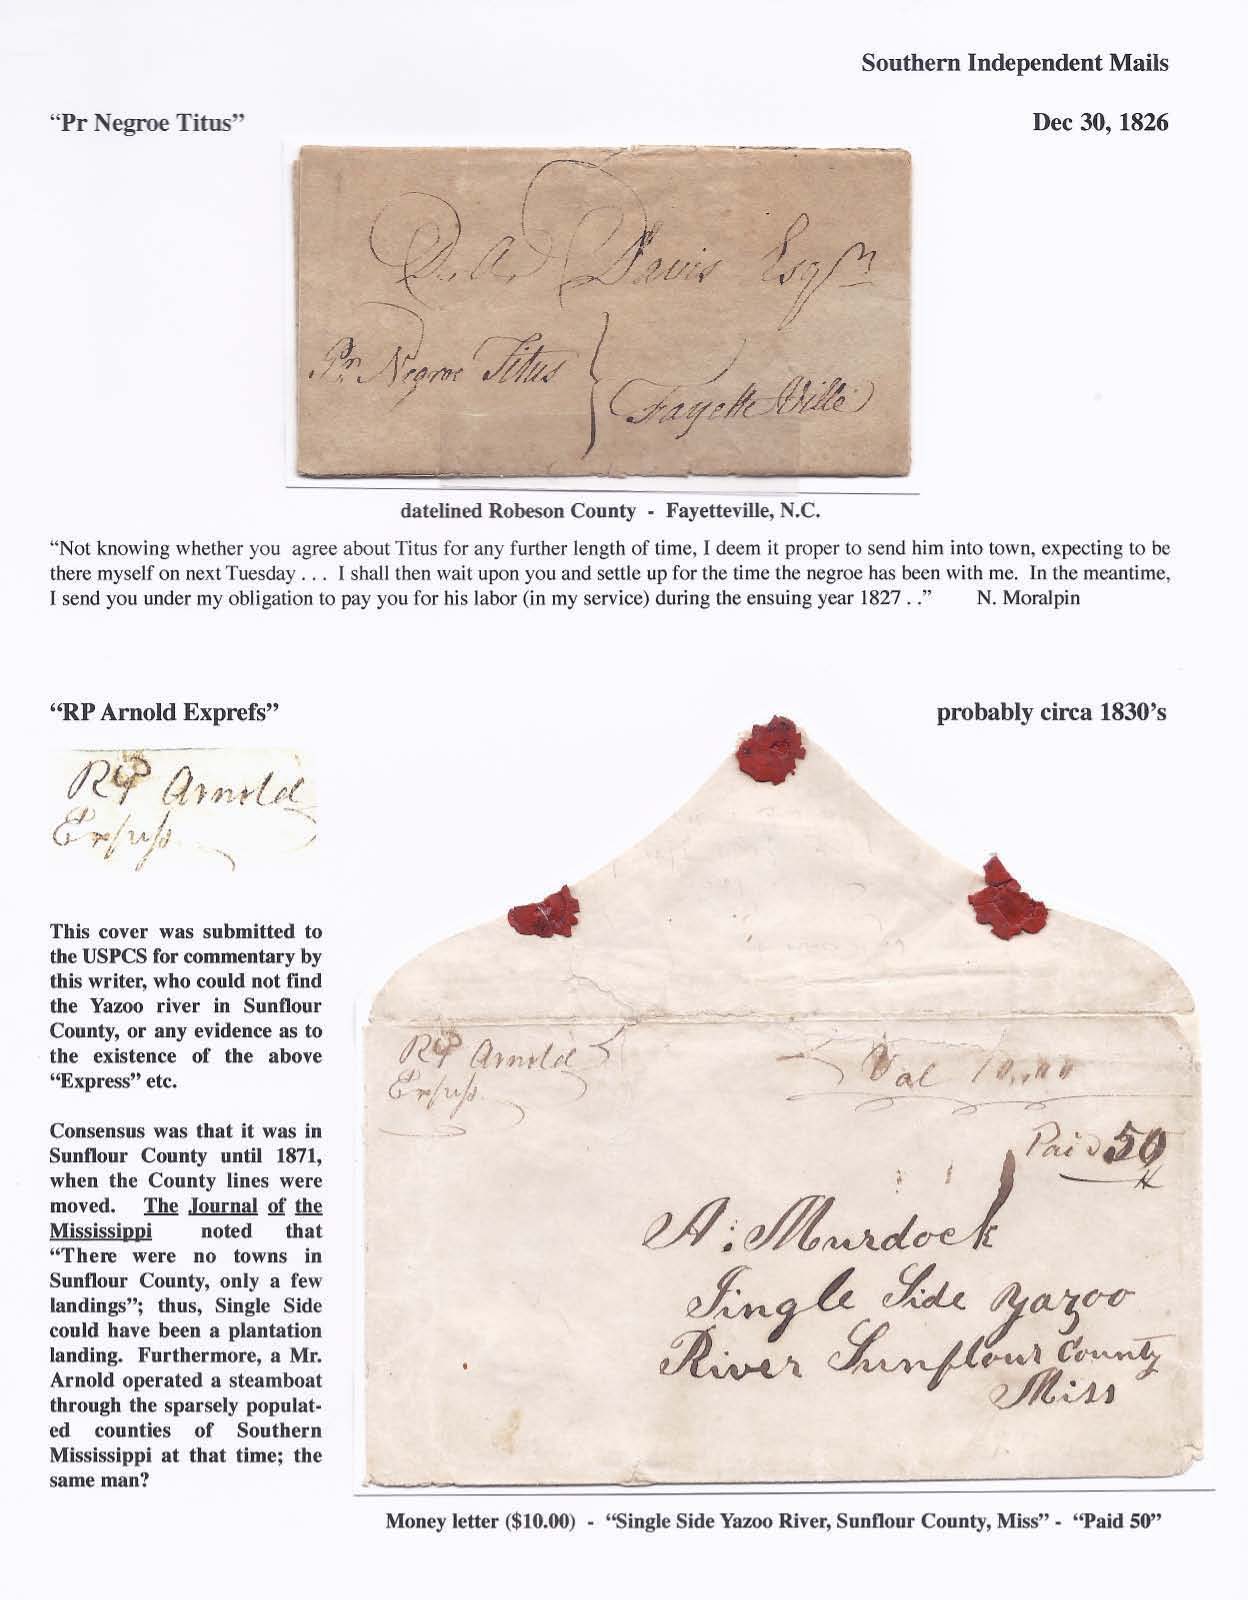 Southern Independent Mails
“Pr Negroe Titus”
Dec 30, 1826
D. A. Davis Esqr
Pr Negroe Titus
Fayette Ville
datelined Robeson County - Fayetteville, N.C.
“Not knowing whether you agree about Titus for any further length of time, I deem it proper to send him into town, expecting to be
there myself on next Tuesday . . . I shall then wait upon you and settle up for the time the negroe has been with me. In the meantime,
I send you under my obligation to pay you for his labor (in my service) during the ensuing year 1827 . .” N. Moralpin
“RP Arnold Exprefs”
probably circa 1830’s
RP Arnold
Express
This cover was submitted to
the USPCS for commentary by
this writer, who could not find
the Yazoo river in Sunflour
County, or any evidence as to
the existence of the above
“Express” etc.
Consensus was that it was in
Sunflour County until 1871,
when the County lines were
moved. The Journal of the
Mississippi noted that
“There were no towns in
Sunflour County, only a few
landings”; thus, Single Side
could have been a plantation
landing. Furthermore, a Mr.
Arnold operated a steamboat
through the sparsely populat-
ed counties of Southern
Mississippi at that time; the
same man?
RP Arnold
Express
Val 10.00
Paid 50
A. Murdock
Single Side Yazoo
River Sunflour County
Miss
Money letter ($10.00) - “Single Side Yazoo River, Sunflour County, Miss” - “Paid 50”